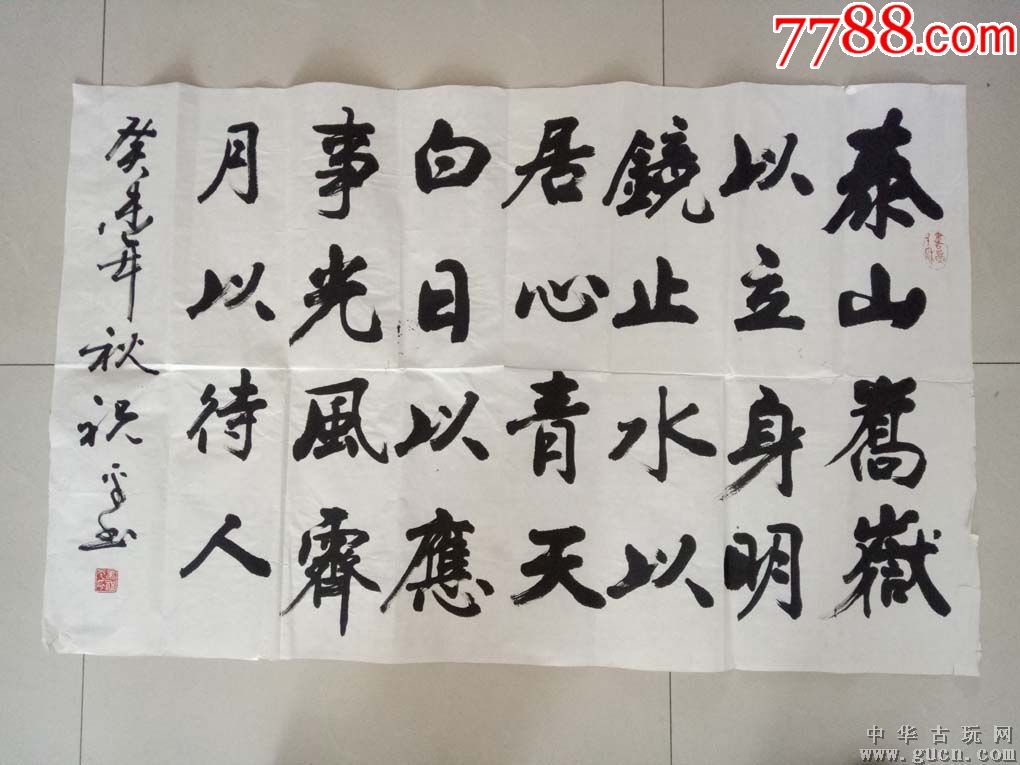 7788.com
泰山喬嶽
以立身明
鏡止水以
居心青天
白日以應
事光風霽
月以待人
癸未年秋祝平书
中华古玩网
www.gucn.com